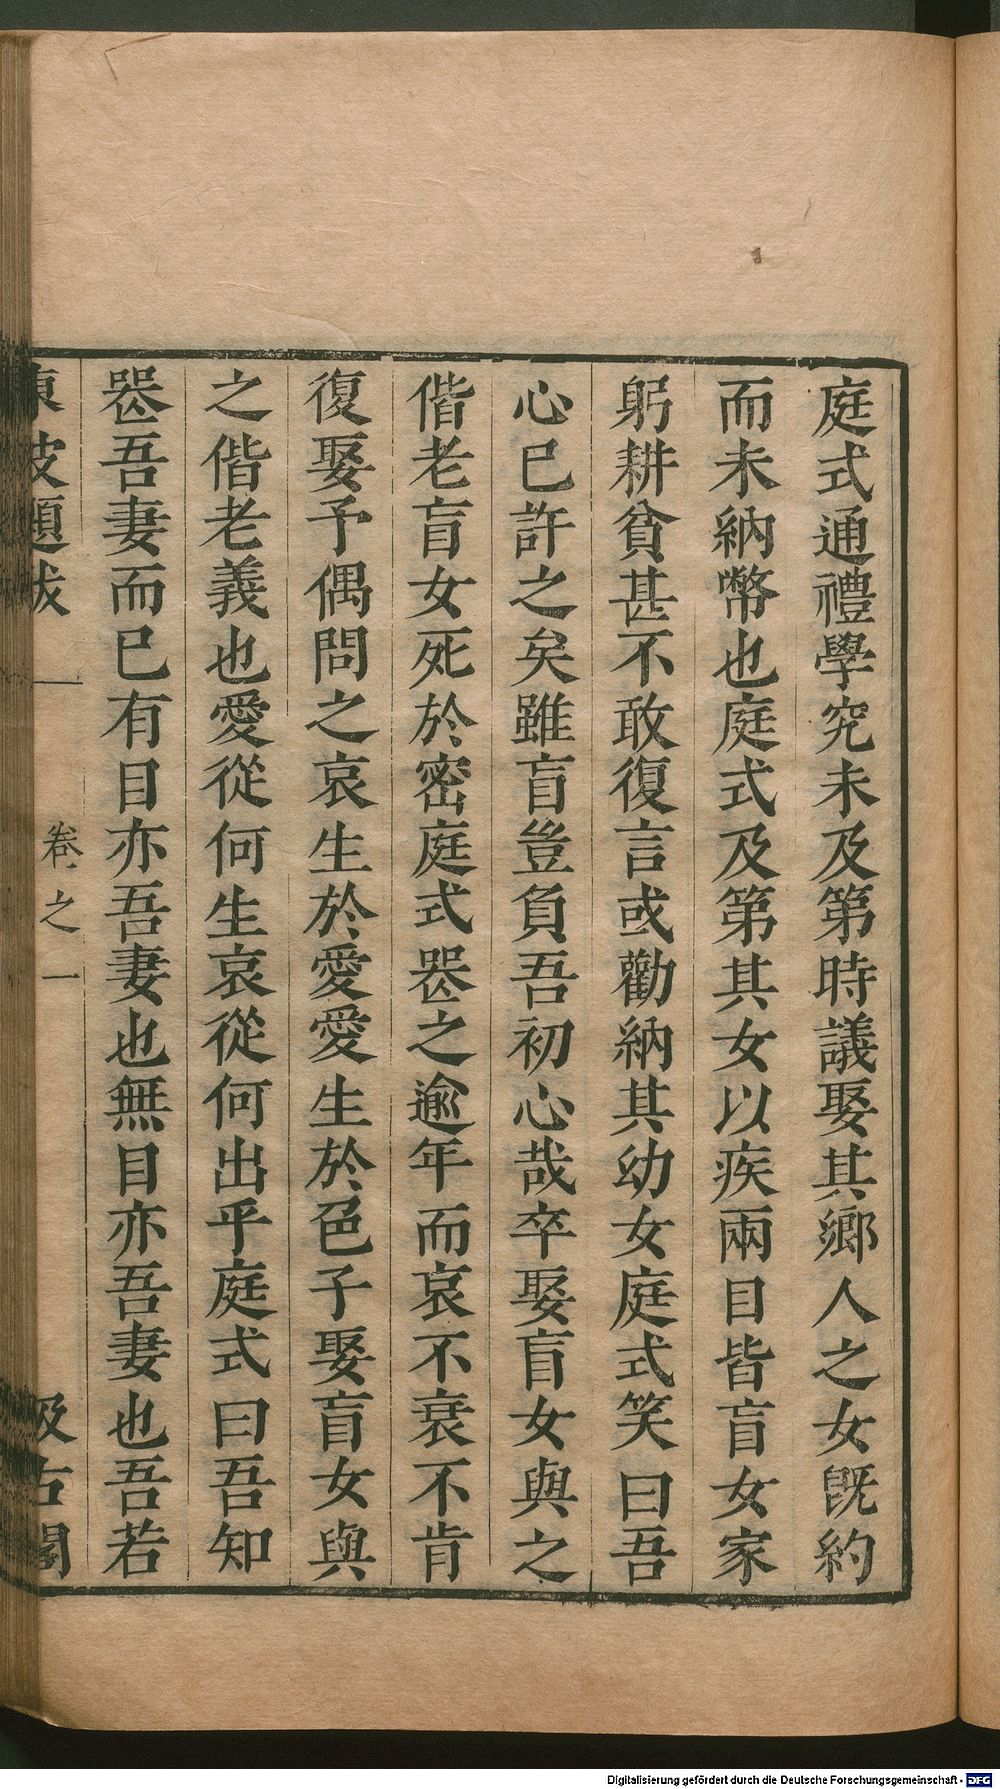 庭式通禮學究未及第時議娶其鄉人之女旣約
而未納幣也庭式及第其女以疾兩目皆盲女家
躬耕貧甚不敢復言或勸納其幼女庭式笑曰吾
心已許之矣雖盲豈負吾初心哉卒娶盲女與之
偕老盲女死於密庭式喪之逾年而哀不衰不肯
復娶予偶問之哀生於愛愛生於色子娶盲女與
之偕老義也愛從何生哀從何出乎庭式曰吾知
喪吾妻而已有目亦吾妻也無目亦吾妻也吾若
東坡題跋 卷之一 汲古閣
Digitalisierung gefördert durch die Deutsche Forschungsgemeinschaft - DFG